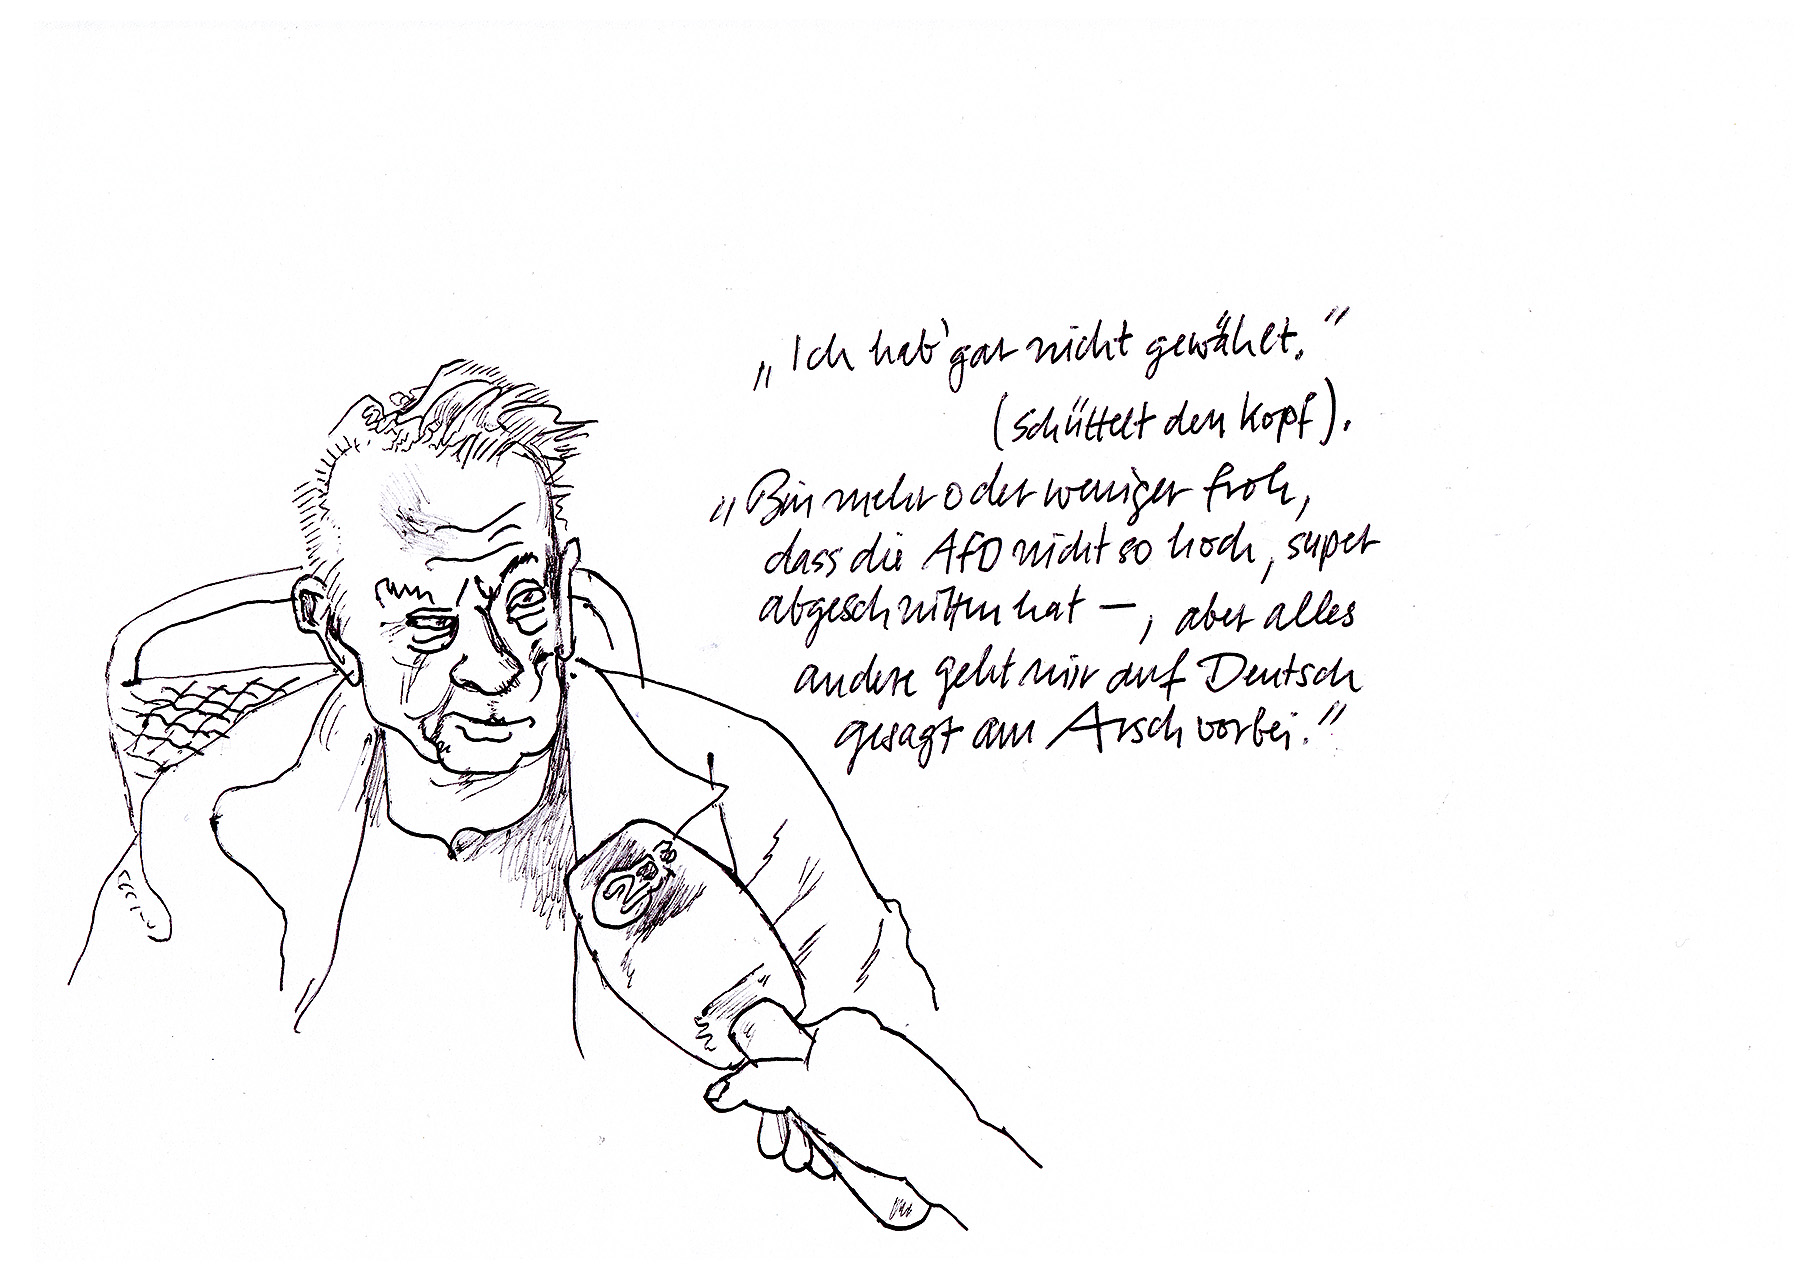 „Ich hab' gar nicht gewählt."
(schüttelt den Kopf).
„Bin mehr oder weniger froh,
dass die AfD nicht so hoch, super
abgeschnitten hat —, aber alles
andere geht mir auf Deutsch
gesagt am Arsch vorbei."
2